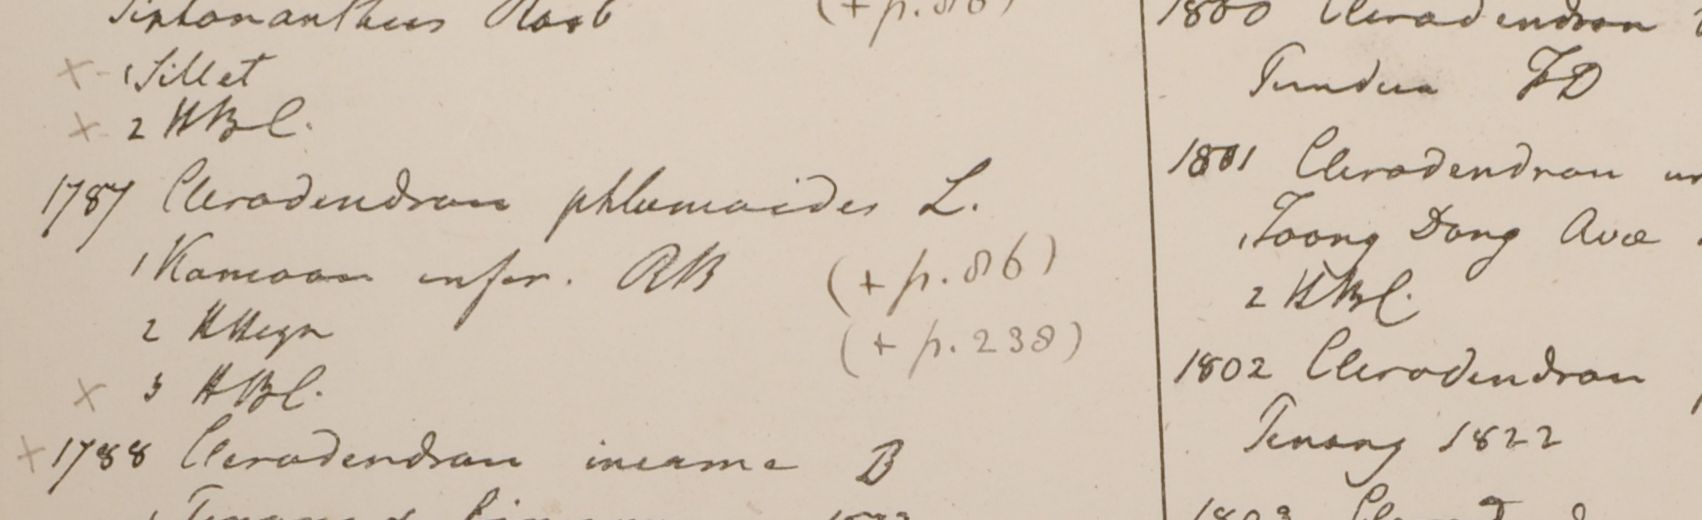 Siphonanthus Roxb (+ p. 86)
× 1 Sillet
× 2 HBC.
1787 Clerodendron phlomoides L.
1 Kamaon infer. RB (+ p. 86)
2 HHeyn (+ p. 238)
× 3 HBC.
× 1788 Clerodendron inerme B
1800 Clerodendron
Pundua FD
1801 Clerodendron
1 Toong Dong Avæ
2 HBC.
1802 Clerodendron
Penang 1822
1803